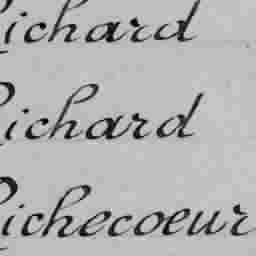 Richard
Richard
Richecoeur